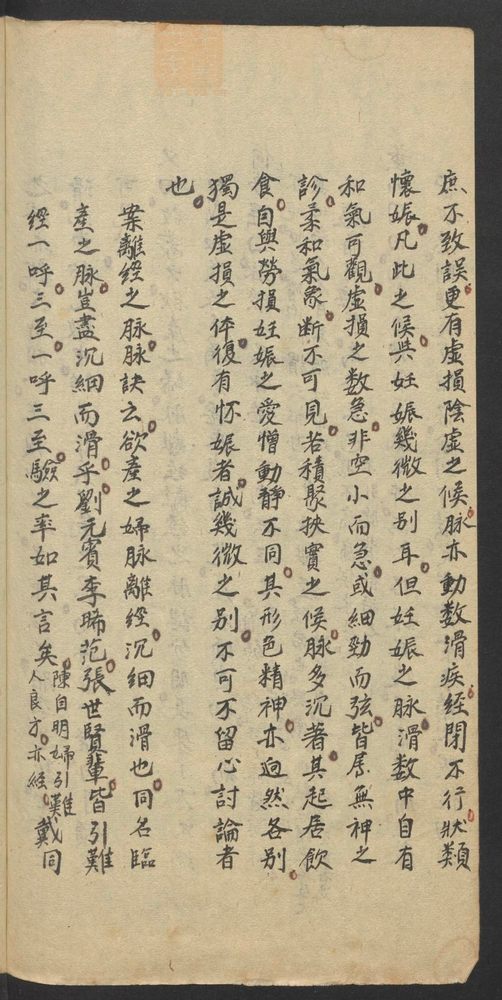 庶不致誤更有虛損陰虛之候脉亦動数滑疾經閉不行狀類
懷娠凡此之候與妊娠幾微之别耳但妊娠之脉滑数中自有
和氣可觀虛損之数急非空小而急或細勁而弦皆屬無神之
診柔和氣象断不可見若積聚挾實之候脉多沉著其起居飲
食自與勞損妊娠之愛憎動静不同其形色精神亦迥然各别
獨是虛損之体復有怀娠者誠幾微之别不可不留心討論者
也
案離經之脉脉訣云欲產之婦脉離經沉细而滑也同名臨
產之脉豈盡沉細而滑乎劉元賓李晞范張世賢輩皆引難
經一呼三至一呼三至驗之率如其言矣陳自明婦人良方亦引難經戴同